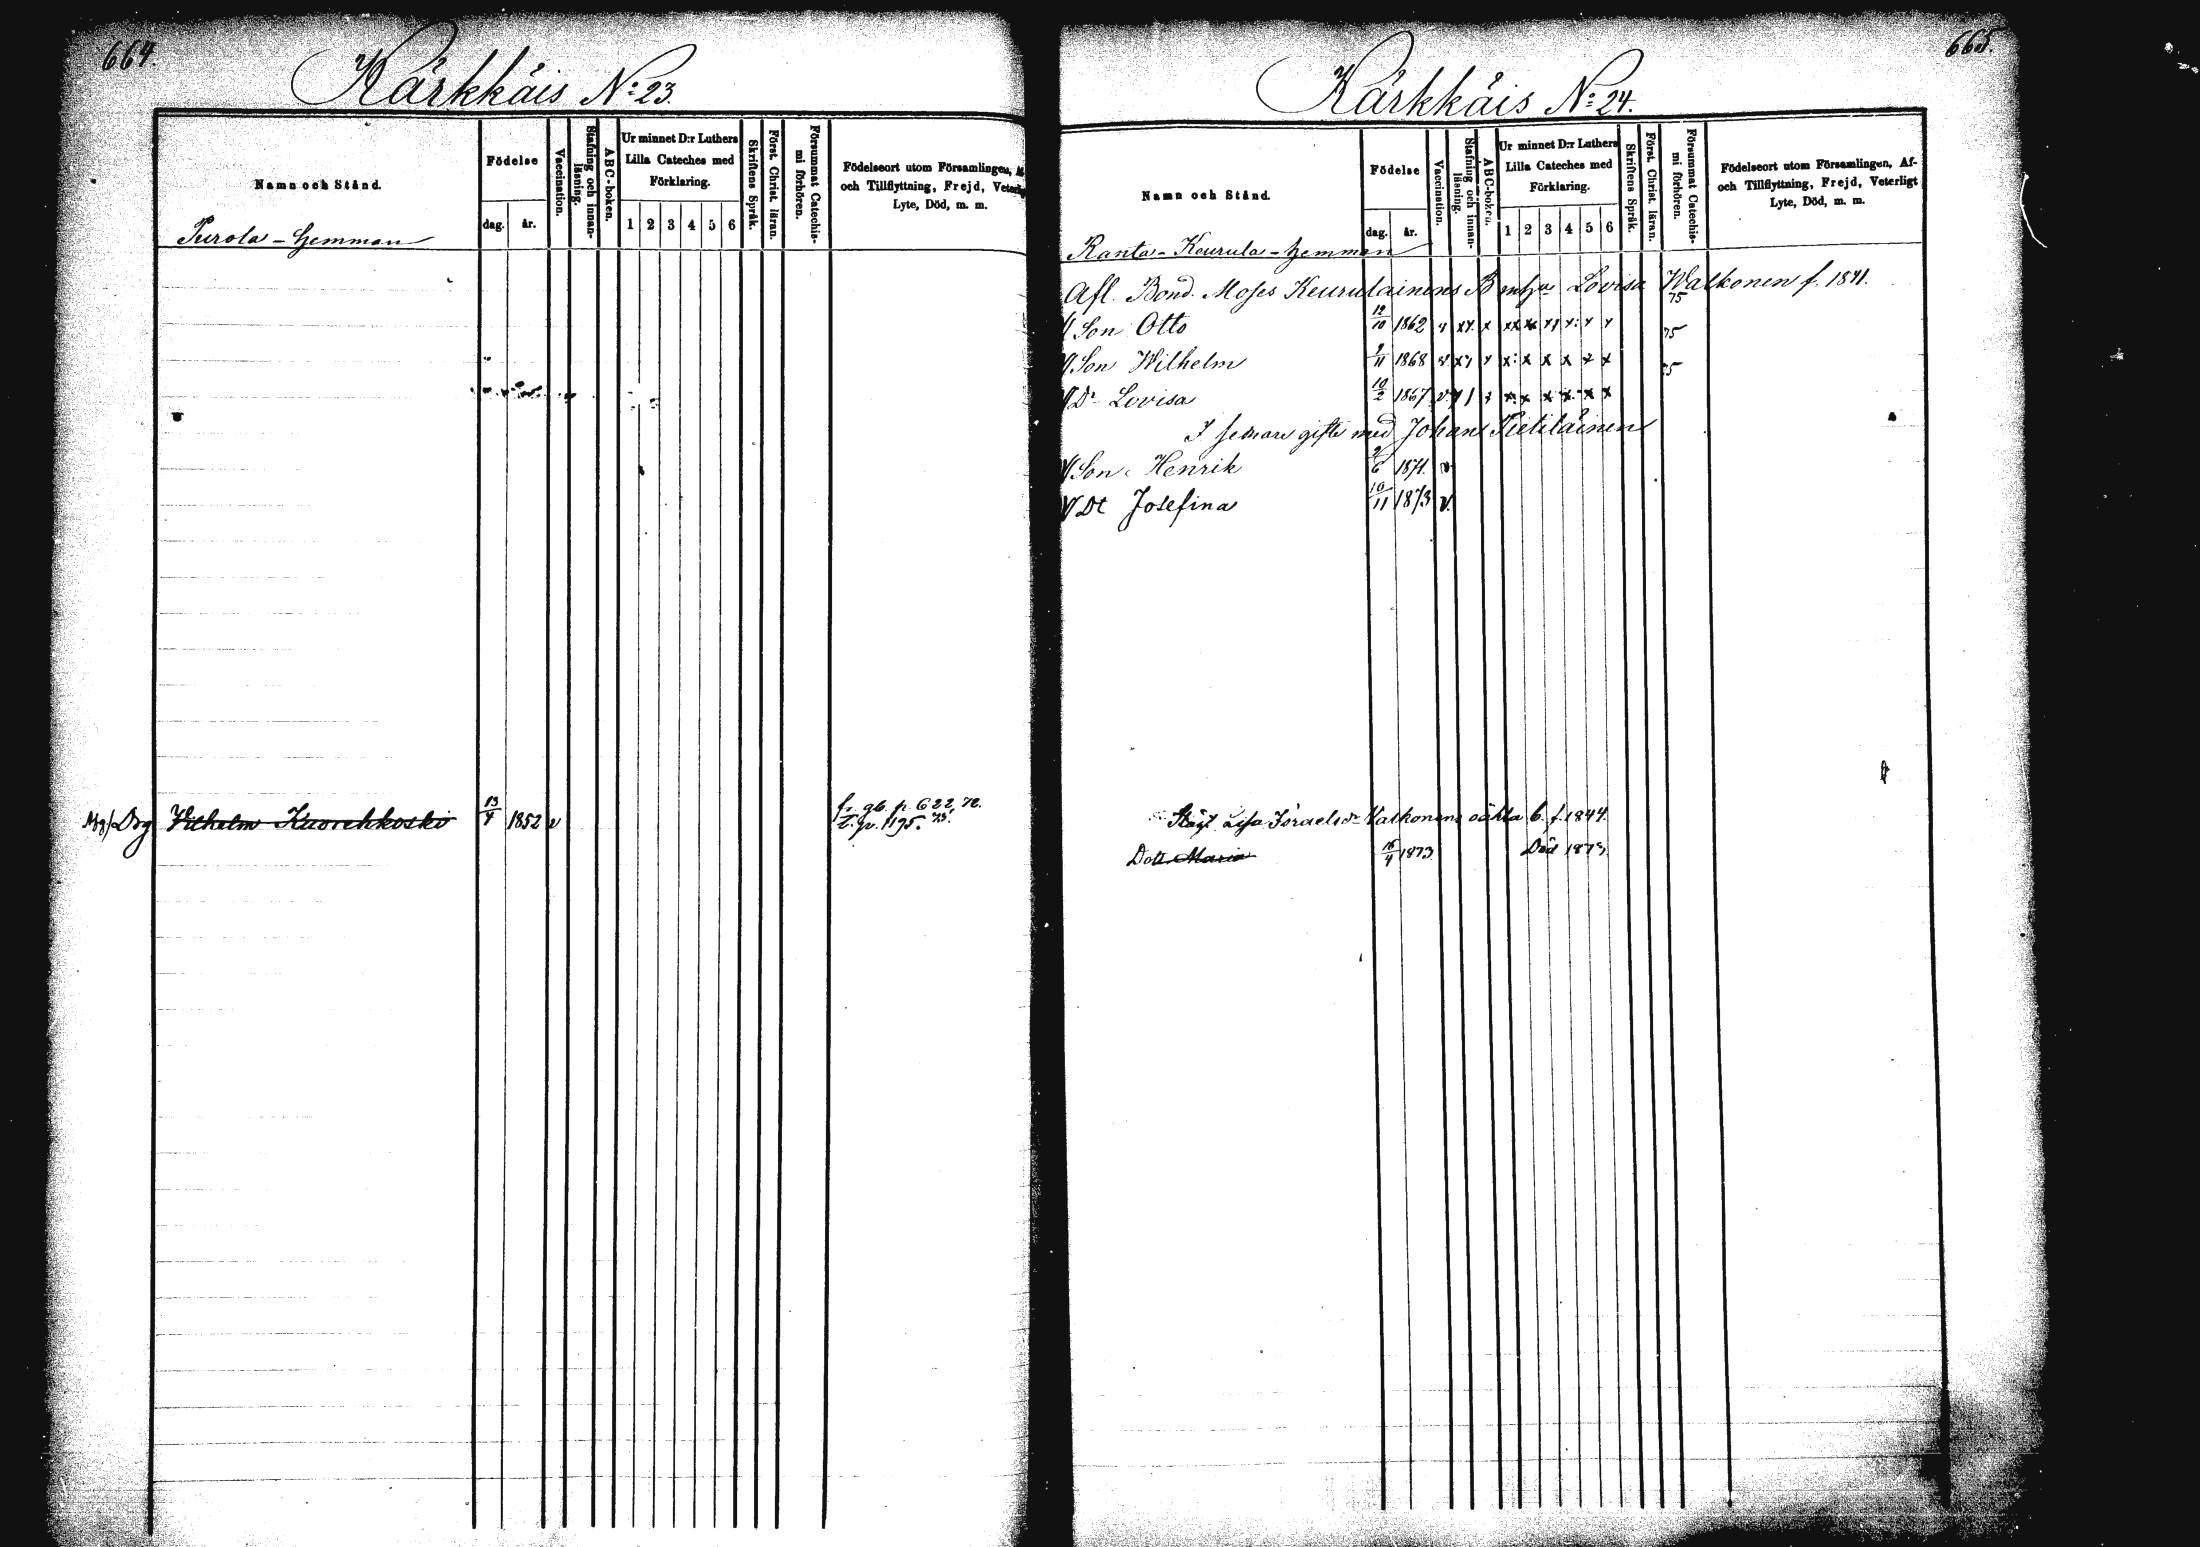 664.
Kärkkäis No: 23.
Namn och Stånd.
Födelse
dag. år.
Vaccination.
Stafning och innanläsning.
ABC-boken.
Ur minnet D:r Luthers
Lilla Cateches med
Förklaring.
1 2 3 4 5 6
Skriftens Språk.
Först. Christ. läran.
Försummat Catechismi förhören.
Födelseort utom Församlingen,
och Tillflyttning, Frejd,
Lyte, Död, m. m.
Purola-hemman
Drg Vilhelm Kuorehkoski 13/4 1852 v fr. gb. p. 622, 72.
t. gb. 1195. 73.
665.
Kärkkäis No: 24.
Namn och Stånd.
Födelse
dag. år.
Vaccination.
Stafning och innanläsning.
ABC-boken.
Ur minnet D:r Luthers
Lilla Cateches med
Förklaring.
1 2 3 4 5 6
Skriftens Språk.
Först. Christ. läran.
Försummat Catechismi förhören.
Födelseort utom Församlingen, Af-
och Tillflyttning, Frejd, Veterligt
Lyte, Död, m. m.
Ranta-Keurula-hemman
Afl. Bond. Moses Keurulainens B Lovisa Walkonen f. 1841.
75
Son Otto 12/10 1862 75
Son Wilhelm 9/11 1868 75
Dr Lovisa 10/2 1867
I senare gifte med Johan Pietiläinen
Son Henrik 2/6 1871. v
Dt Josefina 10/11 1873 v.
Lisa Israelsdr Valkonens oäkta b. f. 1844.
Dott. Maria 16/4 1873 Död 1873.